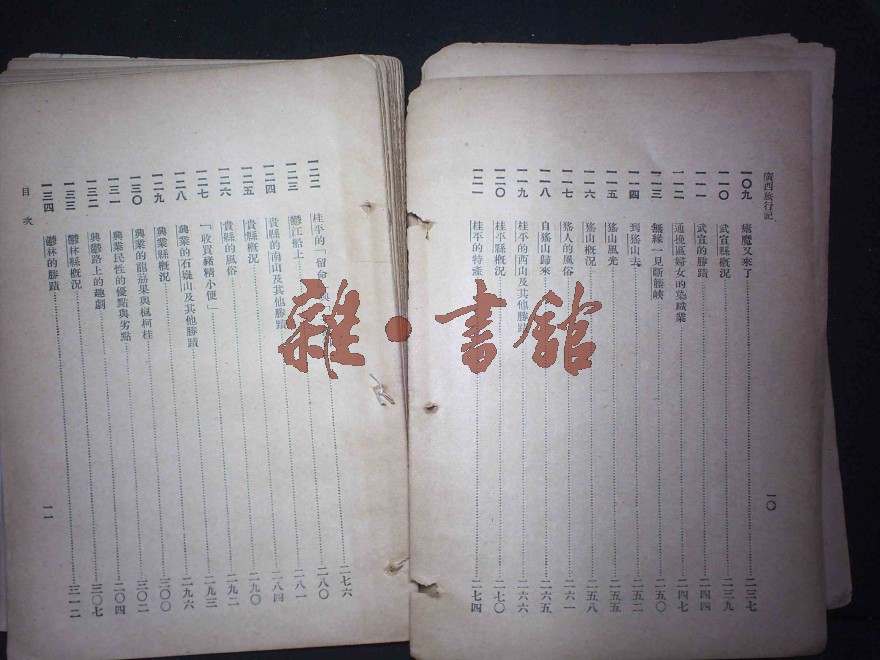 廣西旅行記
一〇
一〇九 魔又來了 二三七
一一〇 武宣縣概況 二三九
一一一 武宣的勝蹟 二四四
一一二 通挽區婦女的染織業 二四七
一一三 無緣一見斷藤峽 二五〇
一一四 到猺山去 二五二
一一五 猺山風光 二五五
一一六 猺山概況 二五八
一一七 猺人的風俗 二六一
一一八 自猺山歸來 二六五
一一九 桂平的西山及其他勝蹟 二六六
一二〇 桂平縣概況 二七〇
一二一 桂平的特產 二七四
二七六
一二二 桂平的「留命 與 二八〇
一二三 鬱江船上 二八一
一二四 貴縣的南山及其他勝蹟 二八四
一二五 貴縣概況 二九〇
一二六 貴縣的風俗 二九二
一二七 「收買豬精小便」 二九三
一二八 興業的石嶷山及其他勝蹟 二九六
一二九 興業縣概況 三〇〇
一三〇 興業的龍荔果與楓柯桂 三〇二
一三一 興業民性的優點與劣點 二〇四
一三二 興鬱路上的趣劇 三〇七
一三三 鬱林縣概況 三一二
一三四 鬱林的勝蹟
目次
一一
雜·書館